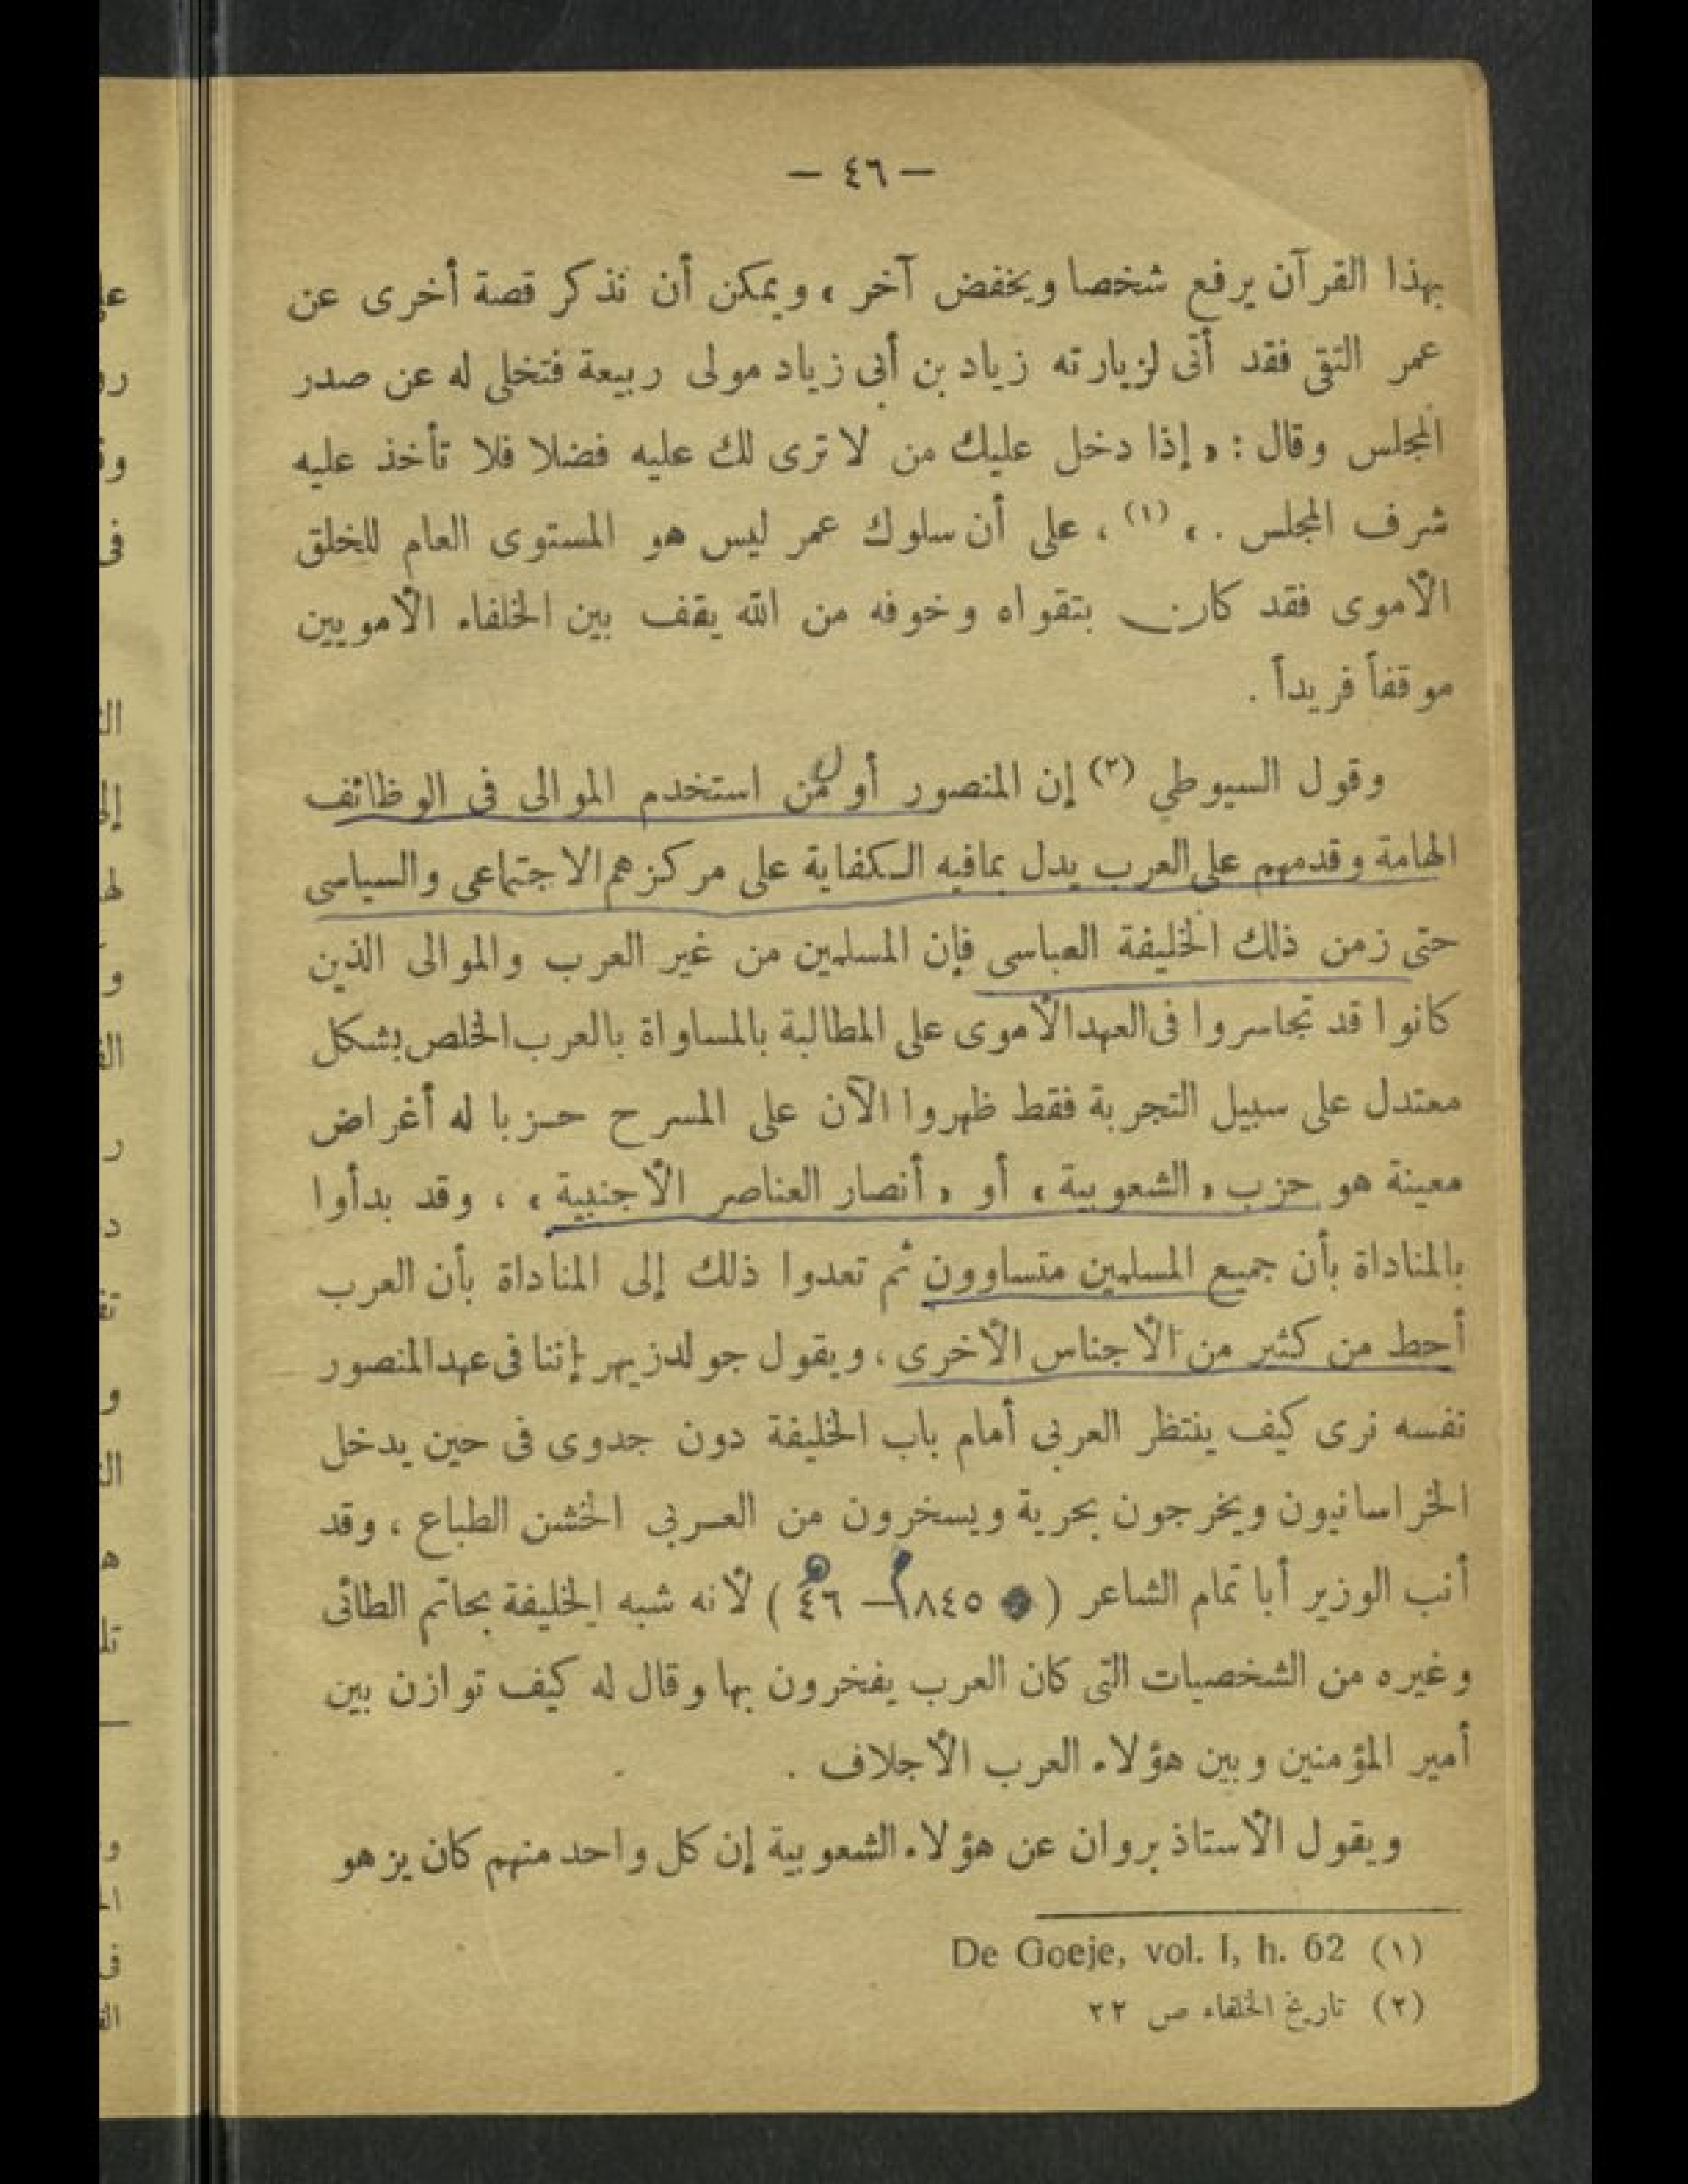 — ٤٦ —
بهذا القرآن يرفع شخصا ويخفض آخر » ويمكن أن نذكر قصة أخرى عن
عمر التقى فقد أتى لزيارته زياد بن أبى زياد مولى ربيعة فتخلى له عن صدر
المجلس وقال : « إذا دخل عليك من لا ترى لك عليه فضلا فلا تأخذ عليه
شرف المجلس . » (١) ، على أن سلوك عمر ليس هو المستوى العام للخلق
الأموى فقد كان بتقواه وخوفه من الله يقف بين الخلفاء الأمويين
موقفاً فريداً .
وقول السيوطي (٢) إن المنصور أول من استخدم الموالى فى الوظائف
الهامة وقدمهم على العرب يدل بمافيه الكفاية على مركزهم الاجتماعى والسياسى
حتى زمن ذلك الخليفة العباسى فإن المسلمين من غير العرب والموالى الذين
كانوا قد تجاسروا فى العهد الأموى على المطالبة بالمساواة بالعرب الخلص بشكل
معتدل على سبيل التجربة فقط ظهروا الآن على المسرح حزبا له أغراض
معينة هو حزب « الشعوبية » أو « أنصار العناصر الأجنبية » ، وقد بدأوا
بالمناداة بأن جميع المسلمين متساوون ثم تعدوا ذلك إلى المناداة بأن العرب
أحط من كثير من الأجناس الأخرى ، ويقول جولدزيهر إننا فى عهد المنصور
نفسه نرى كيف ينتظر العربى أمام باب الخليفة دون جدوى فى حين يدخل
الخراسانيون ويخرجون بحرية ويسخرون من العربى الخشن الطباع ، وقد
أنب الوزير أبا تمام الشاعر ( ٨٤٥ م — ٤٦ ) لأنه شبه الخليفة بحاتم الطائى
وغيره من الشخصيات التى كان العرب يفخرون بها وقال له كيف توازن بين
أمير المؤمنين وبين هؤلاء العرب الأجلاف .
ويقول الأستاذ بروان عن هؤلاء الشعوبية إن كل واحد منهم كان يزهو
(١) De Goeje, vol. I, h. 62
(٢) تاريخ الخلفاء ص ٢٢